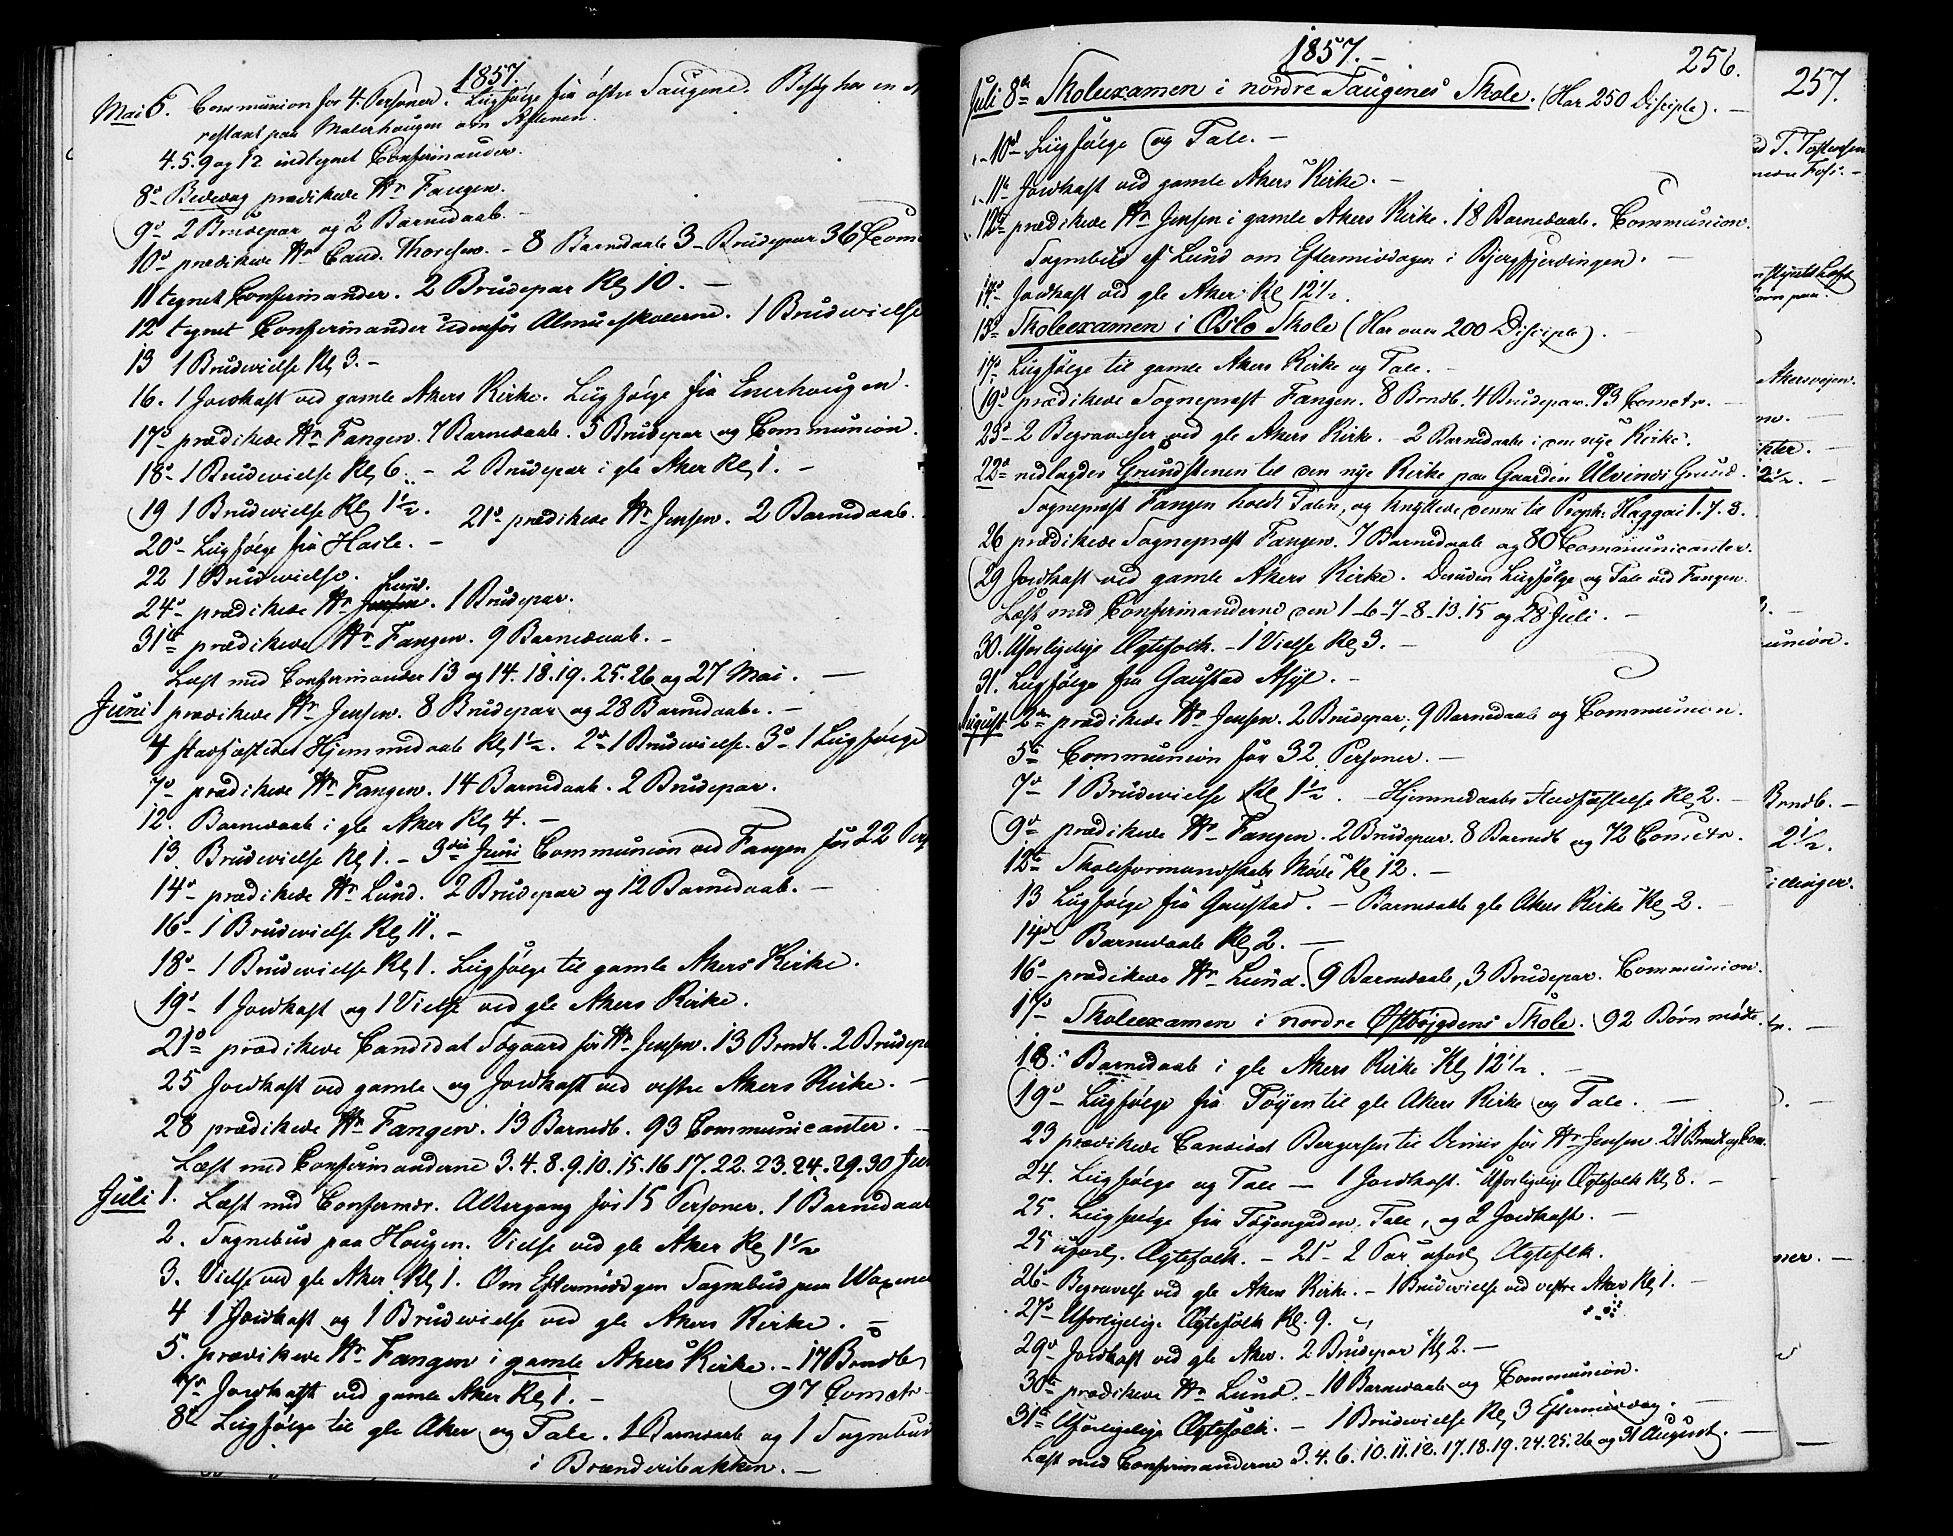 1857.
Mai 6. Communion for 4 Personer. Liigfølge fra østre Taugene. Besøg hos en A
restant paa Malerhaugen om Aftenen.
4. 5. 9 og 12 indtegnet Confirmander.
8d Bededag prædikede Hr Fangen.
9d 2 Brudepar og 2 Barnedaab. -
10d prædikede Hr Cand. Thoresen. - 8 Barnedaab 3 - Brudepar 36 Com
11 tegnet Confirmander. 2 Brudepar Kl 10. -
12 tegnet Confirmander udenfor Almueskolerne. 1 Brudevielse
13 1 Brudevielse Kl 3. -
16. 1 Jordkast ved gamle Akers Kirke. Liigfølge fra Enerhougen.
17d prædikede Hr Fangen. 7 Barnedaab. 5 Brudepar og Communion.
18d - 1 Brudevielse Kl 6. - 2 Brudepar i gle Aker Kl 1. -
19 1 Brudevielse Kl 1 1/2. 21d prædikede Hr Jensen. 2 Barnedaab.
20d - Liigfølge fra Hasle. -
22 1 Brudevielse.
Lund.
24d prædikede Hr Jensen. 1 Brudepar.
31te prædikede Hr Fangen. 9 Barnedaab. -
Læst med Confirmander 13 og 14. 18. 19. 25. 26 og 27 Mai. -
Juni 1 prædikede Hr Jensen. 8 Brudepar og 28 Barnedaab. -
4 stadfæstedes Hjemmedaab Kl 1 1/2. 2d - 1 Brudevielse. 3d - 1 Liigfølge
7d prædikede Hr Fangen. 14 Barnedaab. 2 Brudepar.
12. Barnedaab i gle Aker Kl 4. -
13 Brudevielse Kl 1. - 3die Juni Communion ved Fangen for 22 Pers
14d prædikede Hr Lund. 2 Brudepar og 12 Barnedaab. -
16 - 1 Brudevielse Kl 11. -
18d - 1 Brudevielse Kl 1. Liigfølge til gamle Akers Kirke.
19d - 1 Jordkast og 1 Vielse ved gle Akers Kirke.
21d prædikede Candidat Søgaard for Hr Jensen. 13 Brndb. 2 Brudepa
25 Jordkast ved gamle og Jordkast ved vestre Akers Kirke. -
28 prædikede Hr Fangen. 13 Barnedb. 93 Communicanter. -
Læst med Confirmanderne 3. 4. 8. 9. 10. 15. 16. 17. 22. 23. 24. 29. 30 Jun
Juli 1. Læst med Confirmdr. Altergang for 15 Personer. 1 Barnedaab
2. Sognebud paa Hougen. Vielse ved gle Aker Kl 1 1/2
3. Vielse ved gle Aker Kl 1. Om Eftermiddagen Sognebud paa
4 1 Jordkast og 1 Brudevielse ved gle Akers Kirke. -
5. prædikede Hr Fangen i gamle Akers Kirke. - 17 Barndb
7d Jordkast ved gamle Aker Kl 1. - 97 Cometr -
8d Liigfølge til gle Aker og Tale. 1 Barnedaab og 1 Sognebud
i Brænderibakken. -
1857. -
256.
Juli 8de Skoleexamen i nordre Taugenes Skole. (Har 250 Disciple). -
- 10d Liigfølge og Tale. -
- 11te Jordkast ved gamle Akers Kirke. -
12te prædikede Hr Jensen i gamle Akers Kirke. 18 Barnedaab. Communion.
Sognebud ef Lund om Eftermiddagen i Bjergfjerdingen. -
14d Jordkast ved gle Aker Kl 12 1/2.
15d Skoleexamen i Oslo Skole (Har over 200 Disciple). -
17d Liigfølge til gamle Akers Kirke og Tale. -
19d prædikede Sognepræst Fangen. 8 Brndb. 4 Brudepar. 93 Cometr. -
23d - 2 Begravelser ved gle Akers Kirke. - 2 Barnedaab i den nye Kirke.
22d nedlagdes Grundstenen til den nye Kirke paa Gaarden Ulvens Grund.
Sognepræst Fangen holdt Talen, og knyttede denne til Proph. Haggai 1. 7. 8.
26 prædikede Sognepræst Fangen. 7 Barnedaab og 80 Communicanter.
29 Jordkast ved gamle Akers Kirke. Desuden Liigfølge og Tale ved Fangen.
Læst med Confirmanderne den 1 - 6 - 7 - 8 - 13. 15 og 28 Juli. -
30. Uforligelige Ægtefolk. - 1 Vielse Kl 3. -
31. Liigfølge fra Gaustad Asyl. -
August 2den prædikede Hr Jensen. 2 Brudepar, 9 Barnedaab og Communion.
5te Communion for 32 Personer. -
7d 1 Brudevielse Kl 1 1/2. - Hjemmedaabs Stadfæstelse Kl 2. -
9d prædikede Hr Fangen. 2 Brudepar. 8 Barnedb og 72 Cometr. -
12te Skoleformandskabs Møde Kl 12. -
13 Liigfølge fra Gaustad. - Barnedaab gle Akers Kirke Kl 2. -
14d Barnedaab Kl 2. -
16d prædikede Hr Lund. 9 Barnedaab, 3 Brudepar. Communion.
17d Skoleexamen i nordre Østbygdens Skole. 92 Børn mødte.
18. Barnedaab i gle Akers Kirke Kl 12 1/2. -
19d Liigfølge fra Tøyen til gle Akers Kirke og Tale. -
23 prædikede Candidat Bergersen til for Hr Jensen. 21 Brndb og Com.
24. Liigfølge og Tale - 1 Jordkast. Uforligelige Ægtefolk Kl 8. -
25. Liigfølge fra Tøyengaden, Tale, og 2 Jordkast. -
25 uforl. Ægtefolk. - 21d 2 Par uforl Ægtefolk.
26d Begravelse ved gle Akers Kirke. - 1 Brudevielse ved vestre Aker Kl 1. -
27d Uforligelige Ægtefolk Kl. 9.
29d Jordkast ved gle Aker. 2 Brudepar Kl 2. -
30te prædikede Hr Lund. - 10 Barnedaab og Communion.
31te Uforligelige Ægtefolk. - 1 Brudevielse Kl 3 Eftermiddag. -
Læst med Confirmanderne 3. 4. 6. 10. 11. 12. 17. 18. 19. 24. 25. 26 og 31 August. -
257.
T. Tostensen
Foss. -
Akersvejen.
2 1/2. -
union.
Brndb. -
2 1/2.
ner. -